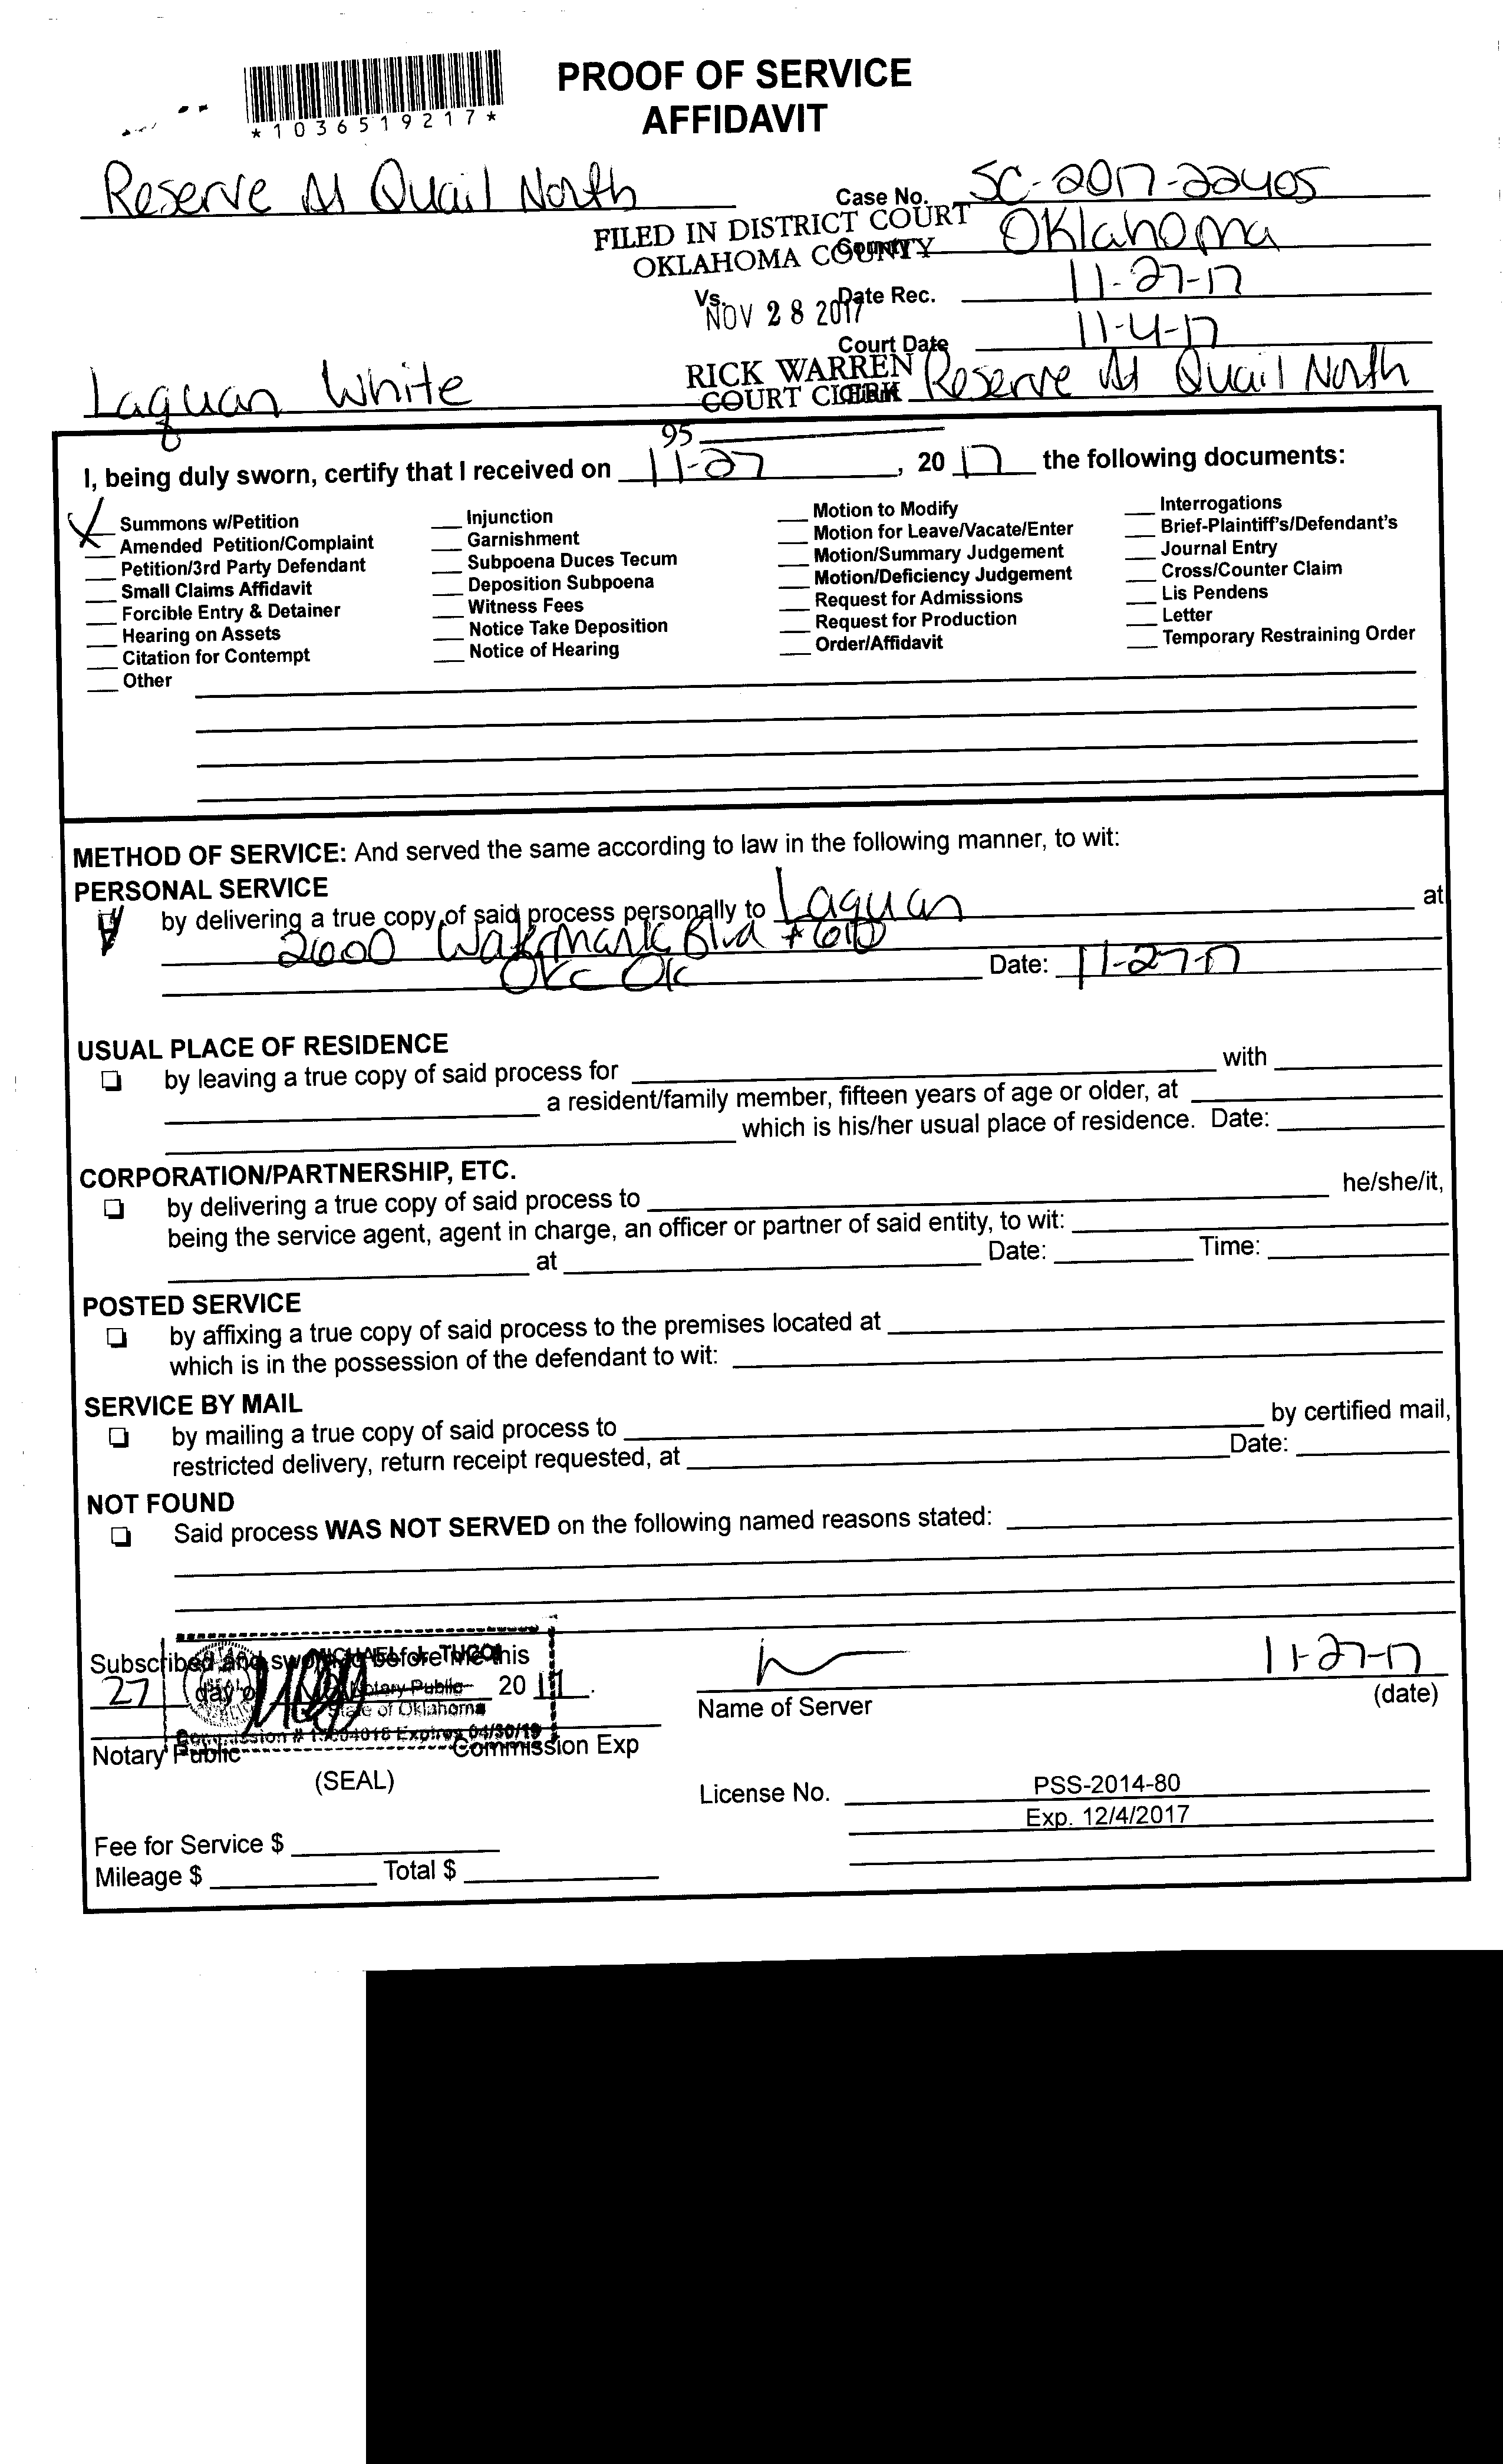 PROOF OF SERVICE
AFFIDAVIT
*1036519217*
Reserve At Quail North
Case No. SC-2017-22405
FILED IN DISTRICT COURT
OKLAHOMA COUNTY
County Oklahoma
Vs.
NOV 28 2017
Date Rec. 11-27-17
Court Date 11-4-17
RICK WARREN
COURT CLERK
Laquan White
Client Reserve At Quail North
95
I, being duly sworn, certify that I received on 11-27, 20 17 the following documents:
X Summons w/Petition
Amended Petition/Complaint
Petition/3rd Party Defendant
Small Claims Affidavit
Forcible Entry & Detainer
Hearing on Assets
Citation for Contempt
Other
Injunction
Garnishment
Subpoena Duces Tecum
Deposition Subpoena
Witness Fees
Notice Take Deposition
Notice of Hearing
Motion to Modify
Motion for Leave/Vacate/Enter
Motion/Summary Judgement
Motion/Deficiency Judgement
Request for Admissions
Request for Production
Order/Affidavit
Interrogations
Brief-Plaintiff's/Defendant's
Journal Entry
Cross/Counter Claim
Lis Pendens
Letter
Temporary Restraining Order
METHOD OF SERVICE: And served the same according to law in the following manner, to wit:
PERSONAL SERVICE
by delivering a true copy of said process personally to Laquan at
2600 Watermark Blvd #
OKC OK Date: 11-27-17
USUAL PLACE OF RESIDENCE
by leaving a true copy of said process for with
a resident/family member, fifteen years of age or older, at
which is his/her usual place of residence. Date:
CORPORATION/PARTNERSHIP, ETC.
by delivering a true copy of said process to he/she/it,
being the service agent, agent in charge, an officer or partner of said entity, to wit:
at Date: Time:
POSTED SERVICE
by affixing a true copy of said process to the premises located at
which is in the possession of the defendant to wit:
SERVICE BY MAIL
by mailing a true copy of said process to by certified mail,
restricted delivery, return receipt requested, at Date:
NOT FOUND
Said process WAS NOT SERVED on the following named reasons stated:
Subscribed and sworn to before me this
27 day of 20 17.
MICHAEL J.
Notary Public
State of Oklahoma
Commission # Expires 04/30/19
Notary Public Commission Exp
(SEAL)
11-27-17
Name of Server (date)
License No. PSS-2014-80
Exp. 12/4/2017
Fee for Service $
Mileage $ Total $